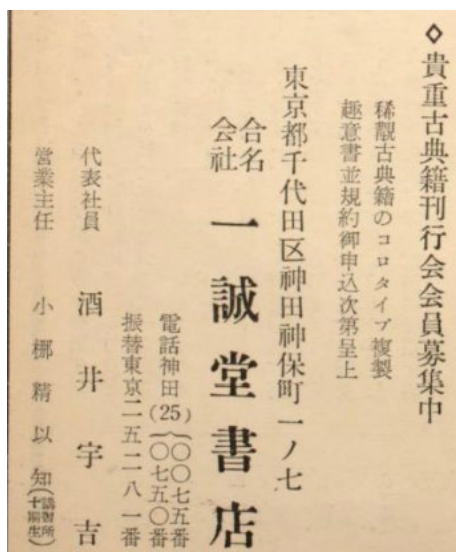 ◇貴重古典籍刊行会会員募集中
稀觀古典籍のコロタイプ複製
趣意書並規約御申込次第呈上
東京都千代田区神田神保町一ノ七
合名会社 一誠堂書店
電話神田(25){〇〇七五番
〇七五〇番
振替東京二五二八一番
代表社員 酒井宇吉
営業主任 小梛精以知(講習所十期生)